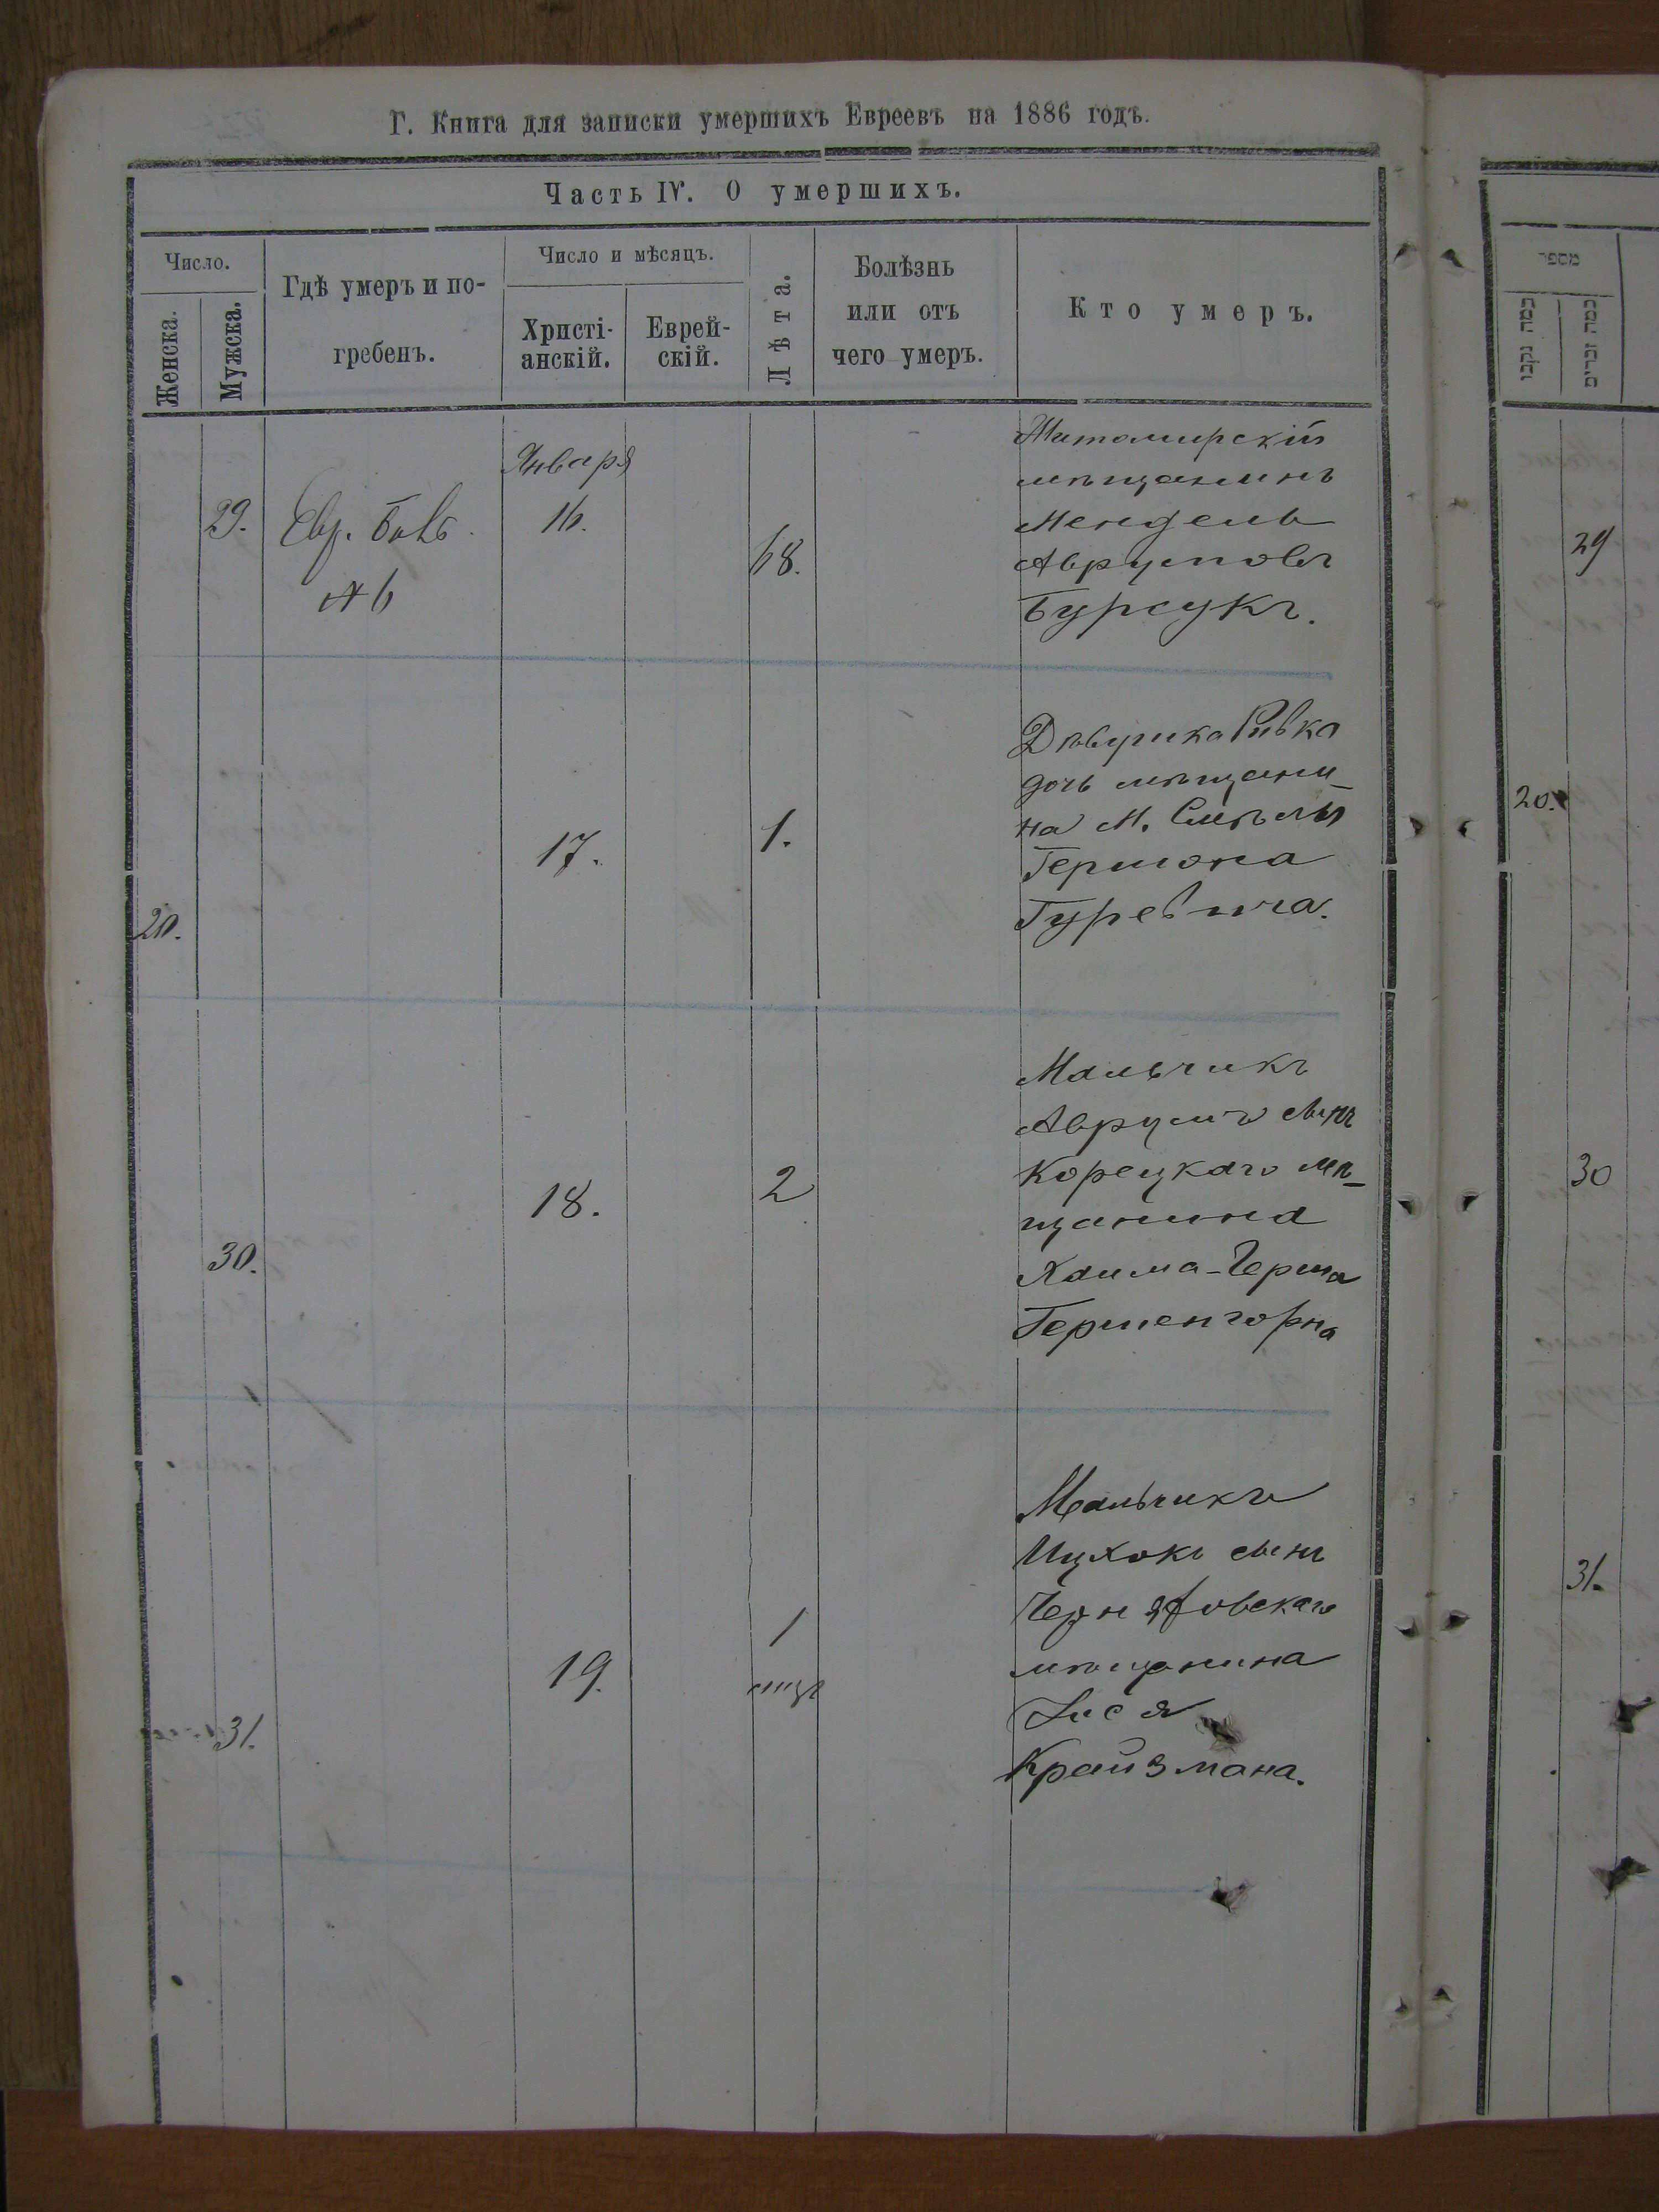 Г. Книга для записки умершихъ Евреевъ на 1886 годъ.
Часть IV. О умершихъ.
Число.
Женска.
Мужска.
Гдѣ умеръ и по-
гребенъ.
Число и мѣсяцъ.
Христі-
анскій.
Еврей-
скій.
Лѣта.
Болѣзнь
или отъ
чего умеръ.
Кто умеръ.
29.
Евр.
Января
16.
68.
Житомирскій
мѣщанинъ
Мендель
Аврумовъ
Бурсукъ.
20.
17.
1.
Дѣвушка Ривка
дочь мѣщани-
на М. Смѣлы
Гершона
Гуревича.
30.
18.
2
Мальчикъ
Аврумъ сынъ
Корецкаго мѣ-
щанина
Хаима-Герша
Герменгорна
31.
19.
1
Мальчикъ
Ицхокъ сынъ
Черняховскаго
мѣщанина
Крайзмана.
מספר
כמה נקבו
כמה זכרים
29
20.
30
31.